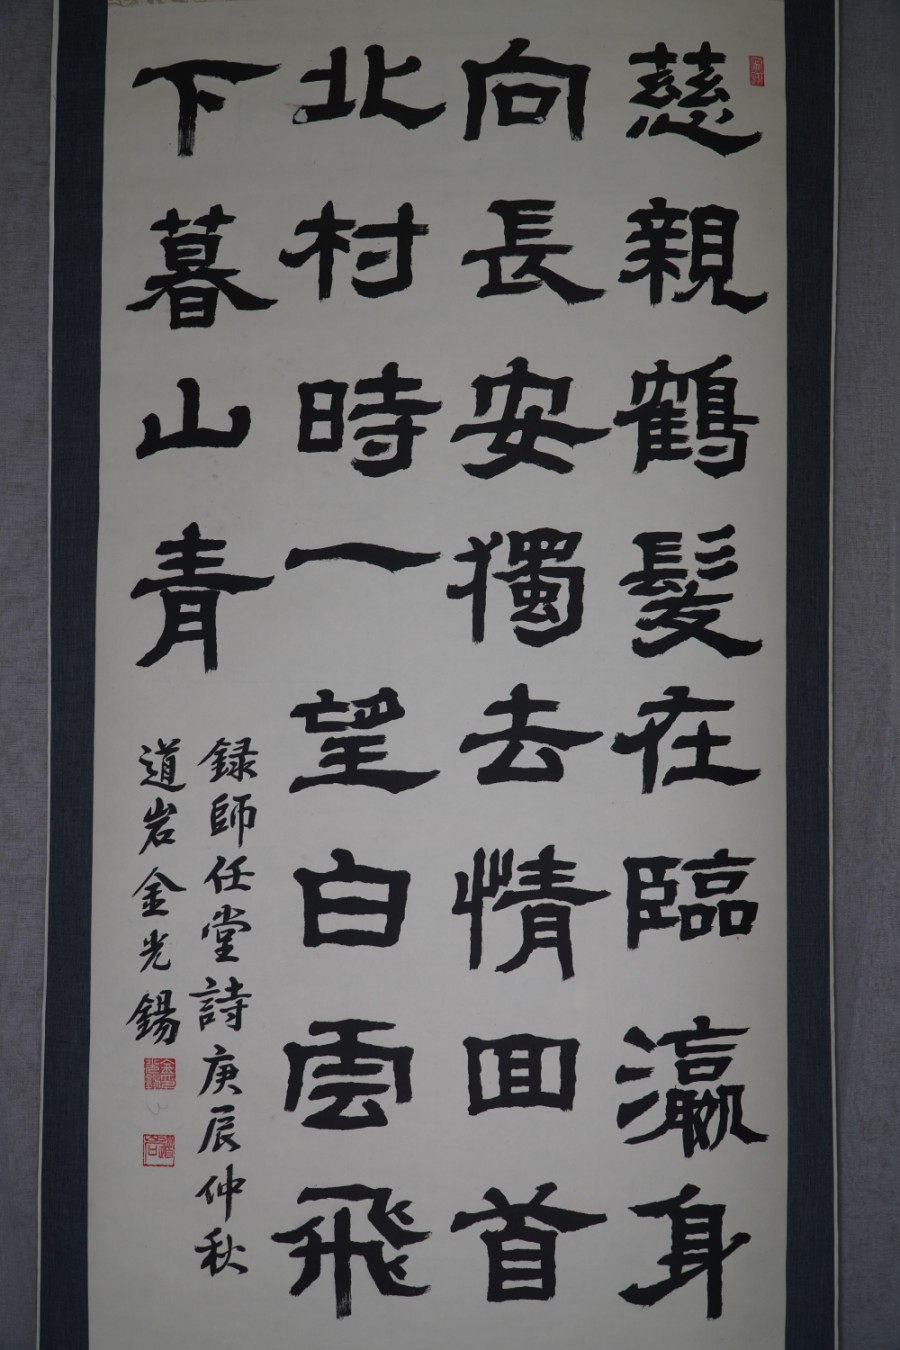 慈親鶴髮在臨瀛身
向長安獨去情回首
北村時一望白雲飛
下暮山青
録師任堂詩庚辰仲秋
道岩金光錫